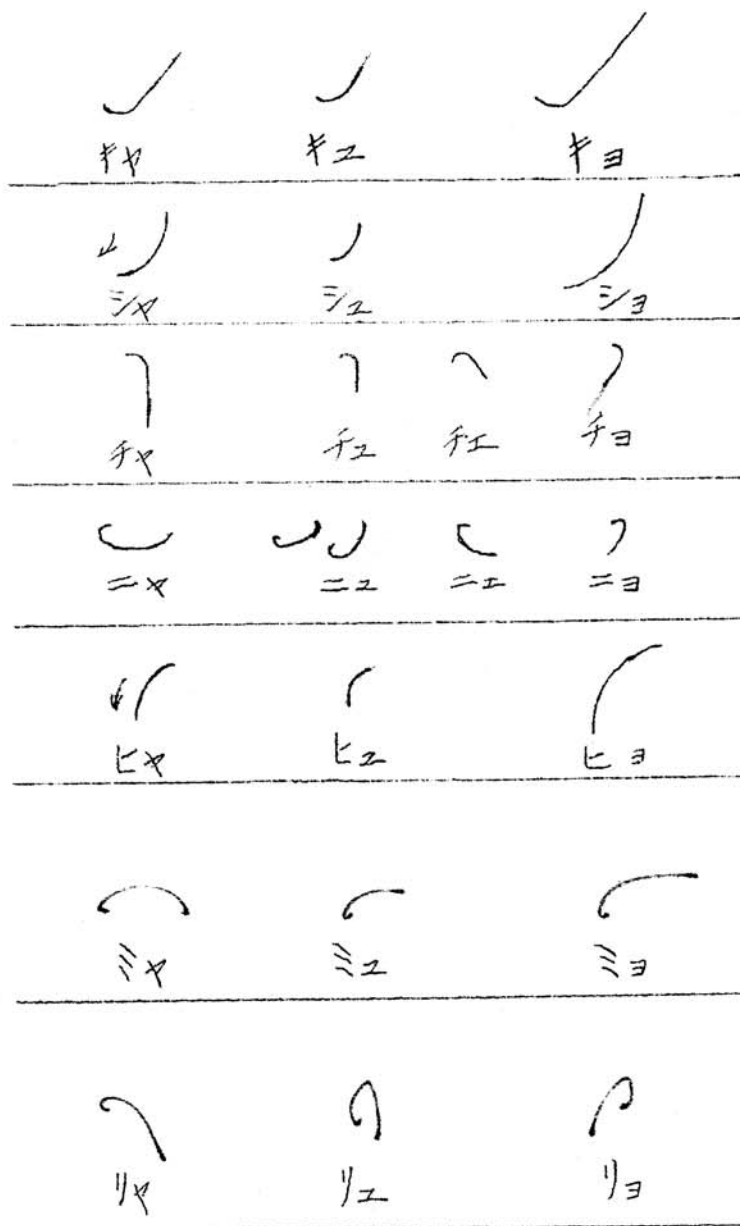 キャ キュ キョ
シャ シュ ショ
チャ チュ チェ チョ
ニャ ニュ ニェ ニョ
ヒャ ヒュ ヒョ
ミャ ミュ ミョ
リャ リュ リョ